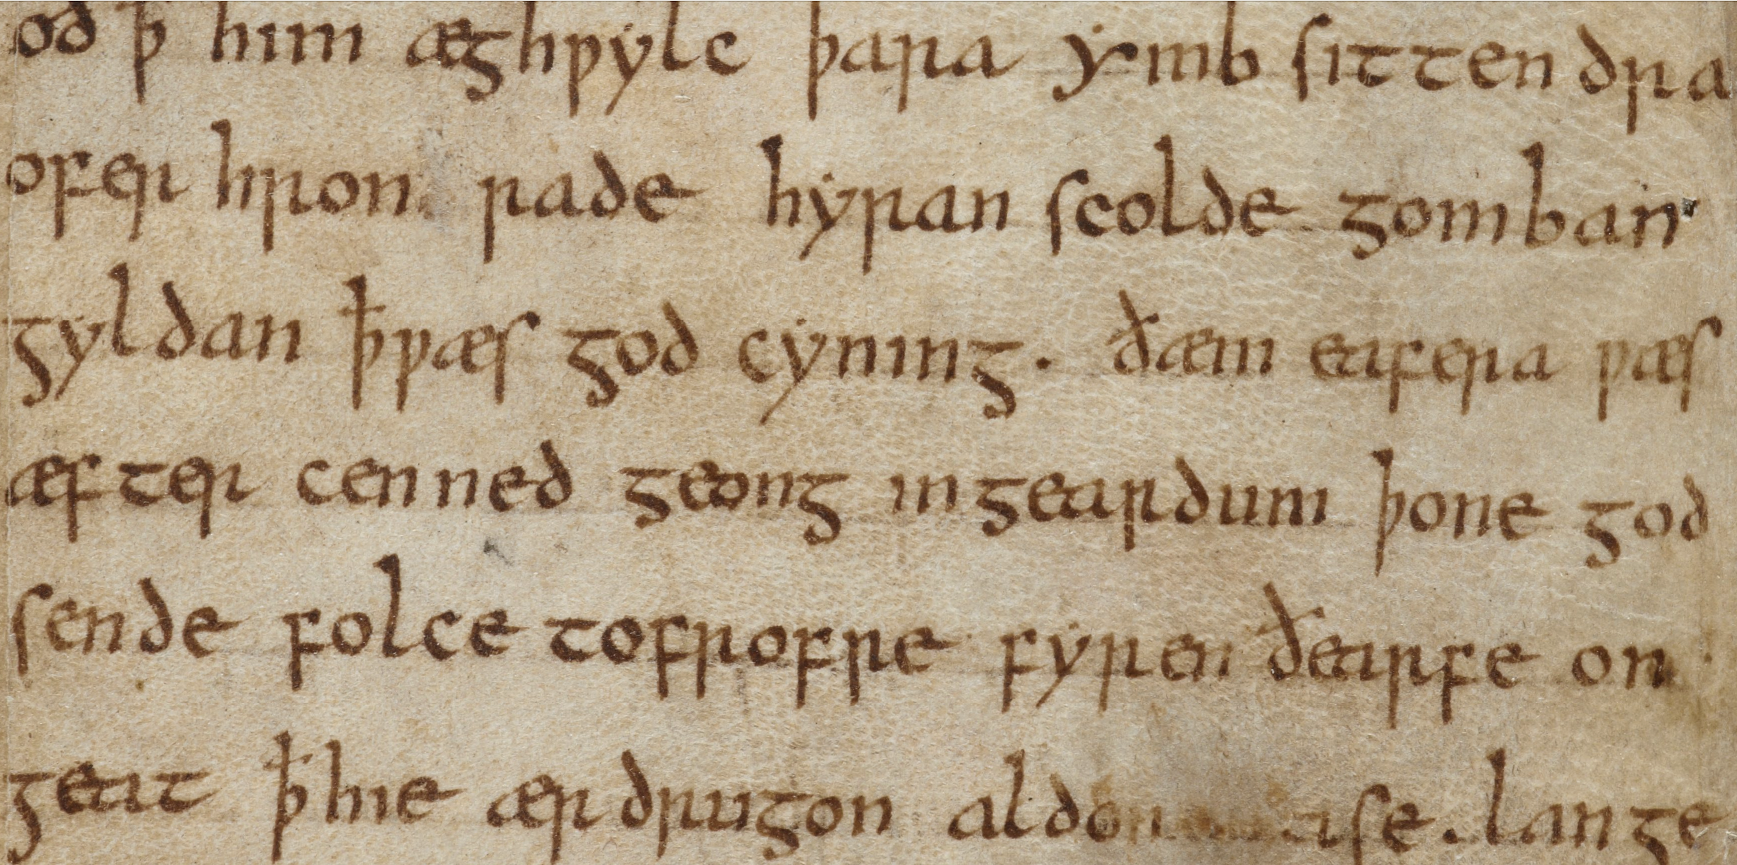 oð ꝥ him æghƿylc þara ẏmb sittendra
ofer hron rade hẏran scolde gomban
gẏldan ꝥƿæs god cẏning. ðæm eafera ƿæs
æfter cenned geong ingeardum þone god
sende folce tofrofre fẏren ðearfe on
geat ꝥhie ær drugon aldor ase. lange